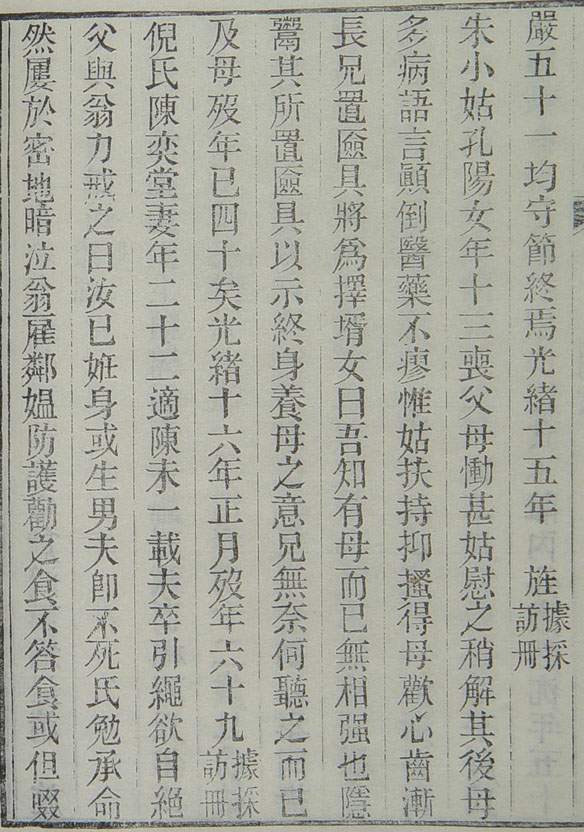 嚴五十一均守節終焉光緒十五年 旌據採訪冊
朱小姑孔陽女年十三喪父母慟甚姑慰之稍解其後母
多病語言顚倒醫藥不瘳惟姑扶持抑搔得母歡心齒漸
長兄置奩具將爲擇壻女曰吾知有母而已無相强也隱
鬻其所置奩具以示終身養母之意兄無奈何聽之而已
及母歿年已四十矣光緒十六年正月歿年六十九據採訪冊
倪氏陳奕堂妻年二十二適陳未一載夫卒引繩欲自絕
父與翁力戒之曰汝已姙身或生男夫卽不死氏勉承命
然屢於密地暗泣翁雇鄰媼防護勸之食不答食或但啜